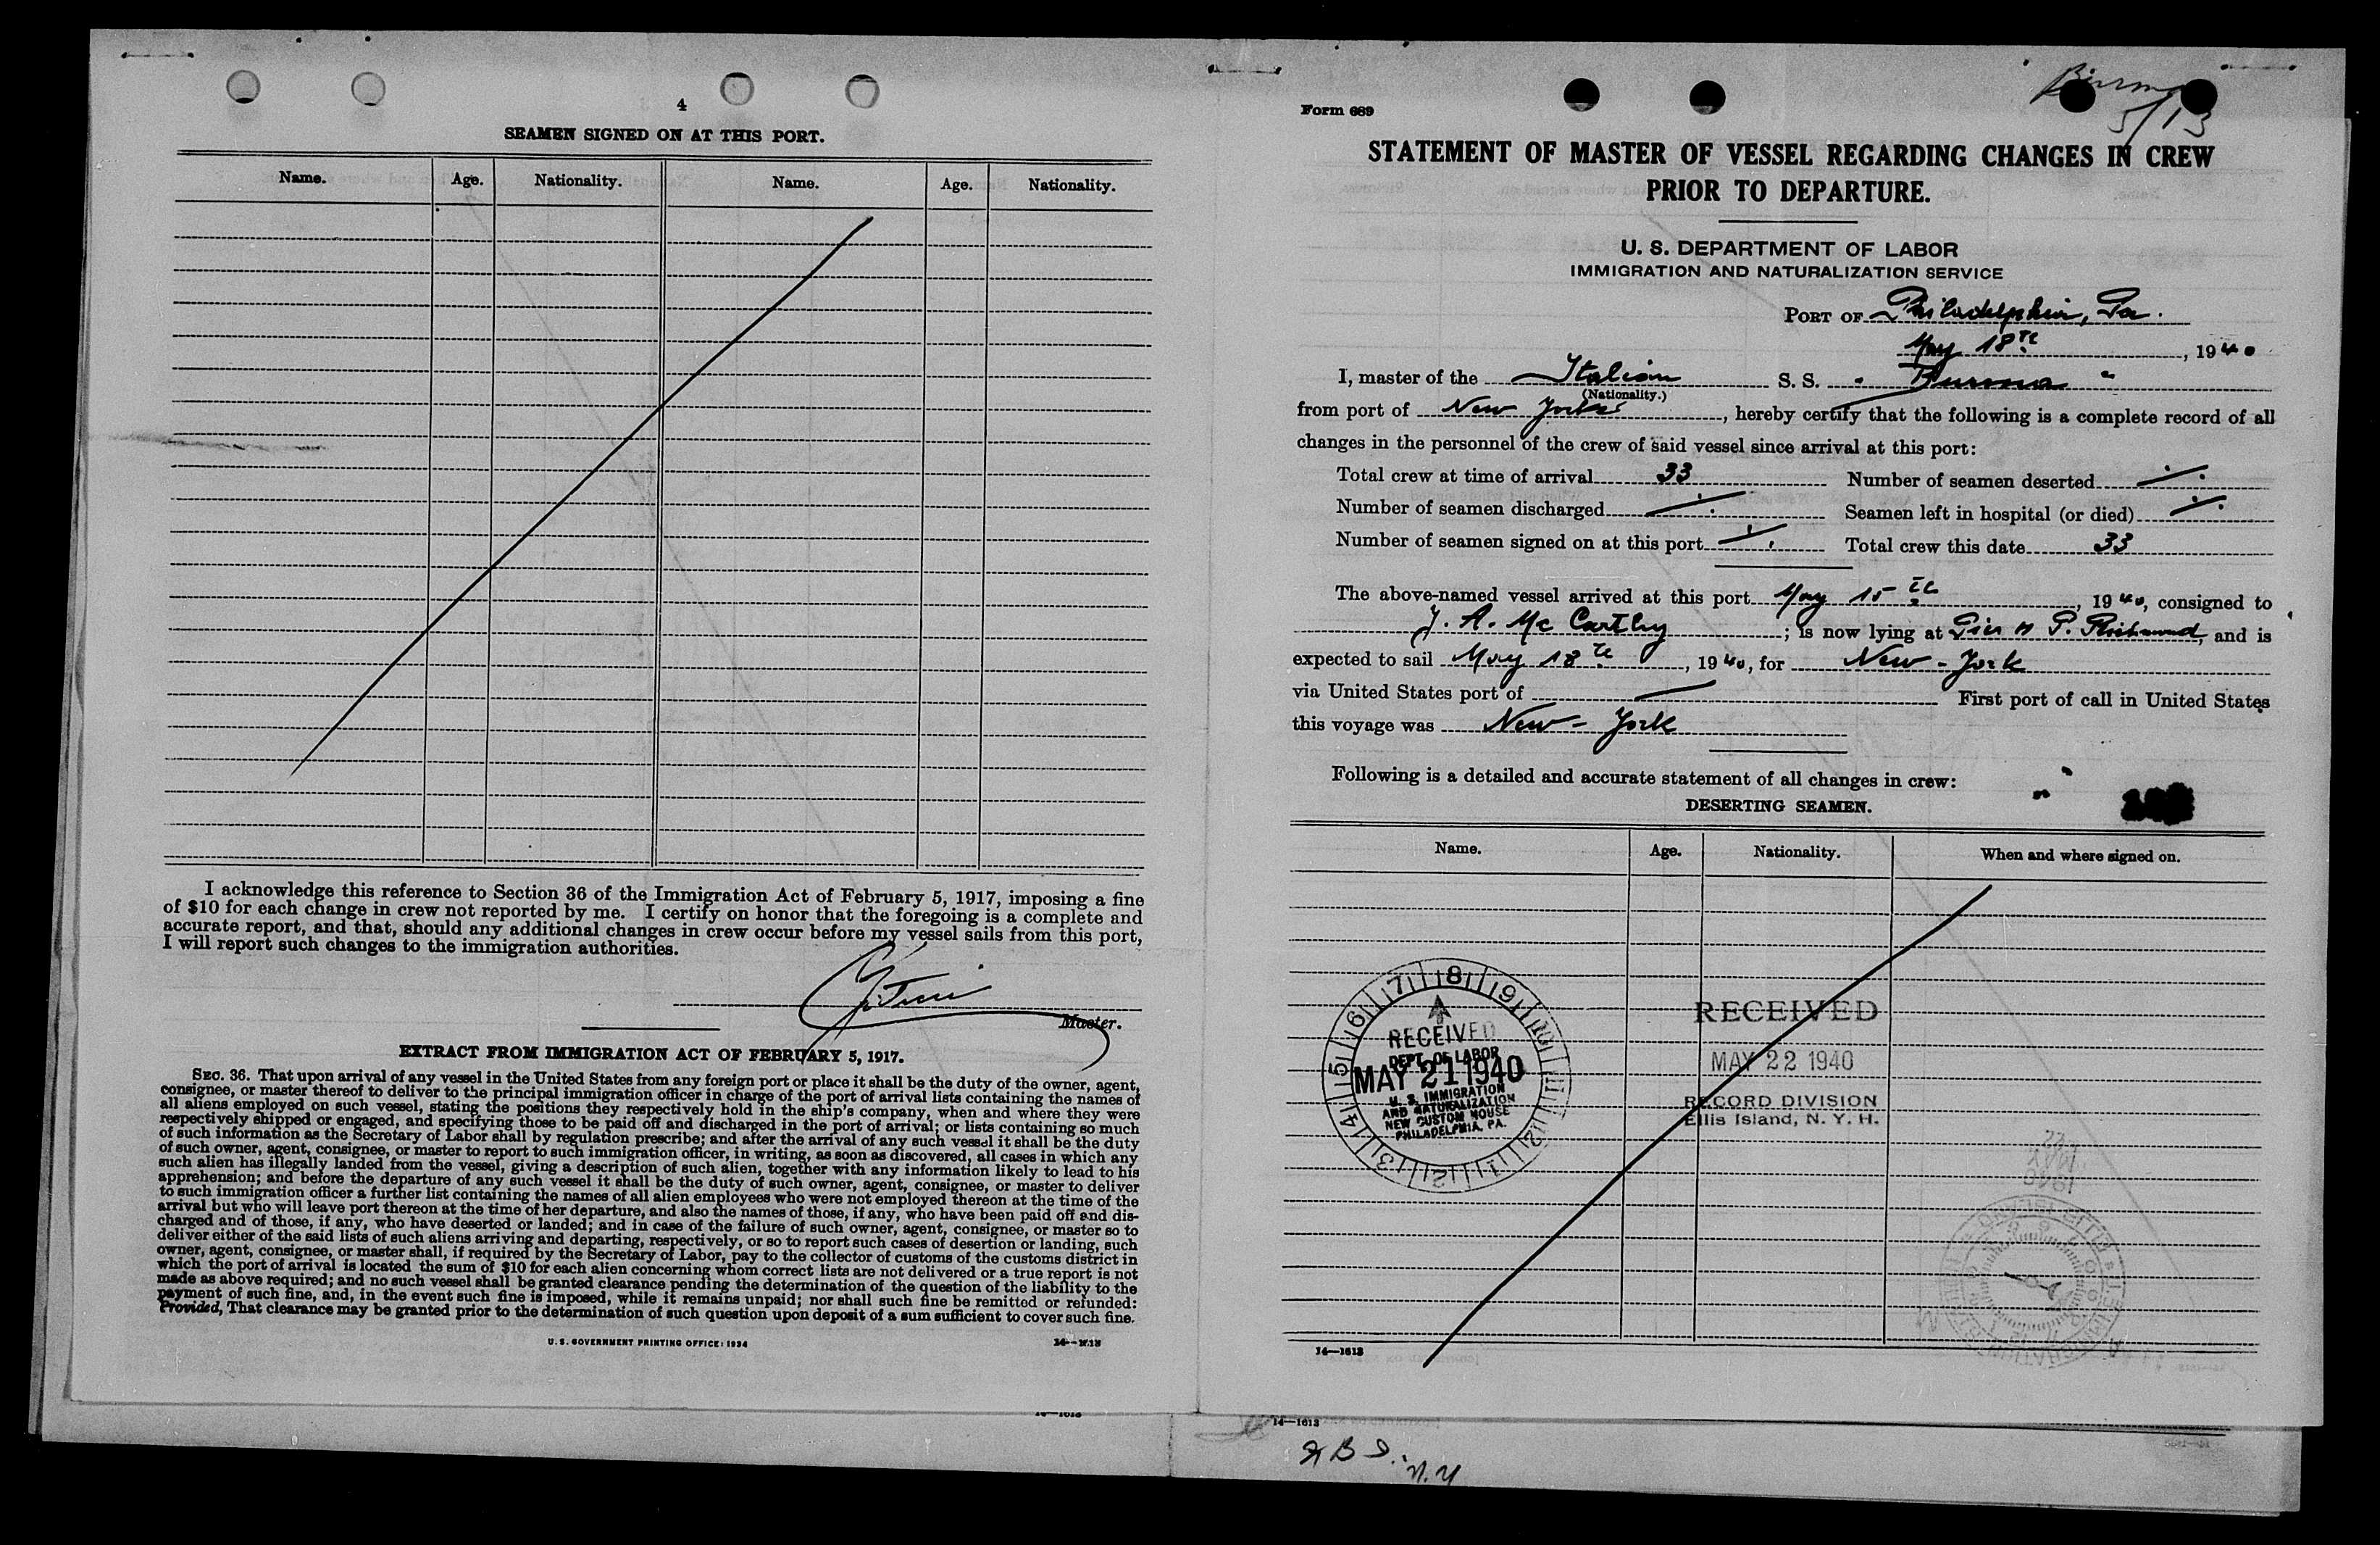 4
SEAMEN SIGNED ON AT THIS PORT.
Name. Age. Nationality. Name. Age. Nationality.
I acknowledge this reference to Section 36 of the Immigration Act of February 5, 1917, imposing a fine
of $10 for each change in crew not reported by me. I certify on honor that the foregoing is a complete and
accurate report, and that, should any additional changes in crew occur before my vessel sails from this port,
I will report such changes to the immigration authorities.
Master.
EXTRACT FROM IMMIGRATION ACT OF FEBRUARY 5, 1917.
SEC. 36. That upon arrival of any vessel in the United States from any foreign port or place it shall be the duty of the owner, agent,
consignee, or master thereof to deliver to the principal immigration officer in charge of the port of arrival lists containing the names of
all aliens employed on such vessel, stating the positions they respectively hold in the ship's company, when and where they were
respectively shipped or engaged, and specifying those to be paid off and discharged in the port of arrival; or lists containing so much
of such information as the Secretary of Labor shall by regulation prescribe; and after the arrival of any such vessel it shall be the duty
of such owner, agent, consignee, or master to report to such immigration officer, in writing, as soon as discovered, all cases in which any
such alien has illegally landed from the vessel, giving a description of such alien, together with any information likely to lead to his
apprehension; and before the departure of any such vessel it shall be the duty of such owner, agent, consignee, or master to deliver
to such immigration officer a further list containing the names of all alien employees who were not employed thereon at the time of the
arrival but who will leave port thereon at the time of her departure, and also the names of those, if any, who have been paid off and dis-
charged and of those, if any, who have deserted or landed; and in case of the failure of such owner, agent, consignee, or master so to
deliver either of the said lists of such aliens arriving and departing, respectively, or so to report such cases of desertion or landing, such
owner, agent, consignee, or master shall, if required by the Secretary of Labor, pay to the collector of customs of the customs district in
which the port of arrival is located the sum of $10 for each alien concerning whom correct lists are not delivered or a true report is not
made as above required; and no such vessel shall be granted clearance pending the determination of the question of the liability to the
payment of such fine, and, in the event such fine is imposed, while it remains unpaid; nor shall such fine be remitted or refunded:
Provided, That clearance may be granted prior to the determination of such question upon deposit of a sum sufficient to cover such fine.
U. S. GOVERNMENT PRINTING OFFICE: 1934
5/13
Form 689
STATEMENT OF MASTER OF VESSEL REGARDING CHANGES IN CREW
PRIOR TO DEPARTURE.
U. S. DEPARTMENT OF LABOR
IMMIGRATION AND NATURALIZATION SERVICE
PORT OF Philadelphia, Pa.
May 18th, 1940
I, master of the Italian S. S. "Burma"
(Nationality.)
from port of New York, hereby certify that the following is a complete record of all
changes in the personnel of the crew of said vessel since arrival at this port:
Total crew at time of arrival 33 Number of seamen deserted
Number of seamen discharged Seamen left in hospital (or died)
Number of seamen signed on at this port Total crew this date 33
The above-named vessel arrived at this port May 15th, 1940, consigned to
J. A. Mc Carthy; is now lying at Pier P. Richmond, and is
expected to sail May 18th, 1940, for New-York
via United States port of — First port of call in United States
this voyage was New-York
Following is a detailed and accurate statement of all changes in crew:
DESERTING SEAMEN.
Name. Age. Nationality. When and where signed on.
RECEIVED
DEPT. OF LABOR
MAY 21 1940
U. S. IMMIGRATION
AND NATURALIZATION
NEW CUSTOM HOUSE
PHILADELPHIA, PA.
RECEIVED
MAY 22 1940
RECORD DIVISION
Ellis Island, N. Y. H.
14—1613
14—1613
N.Y